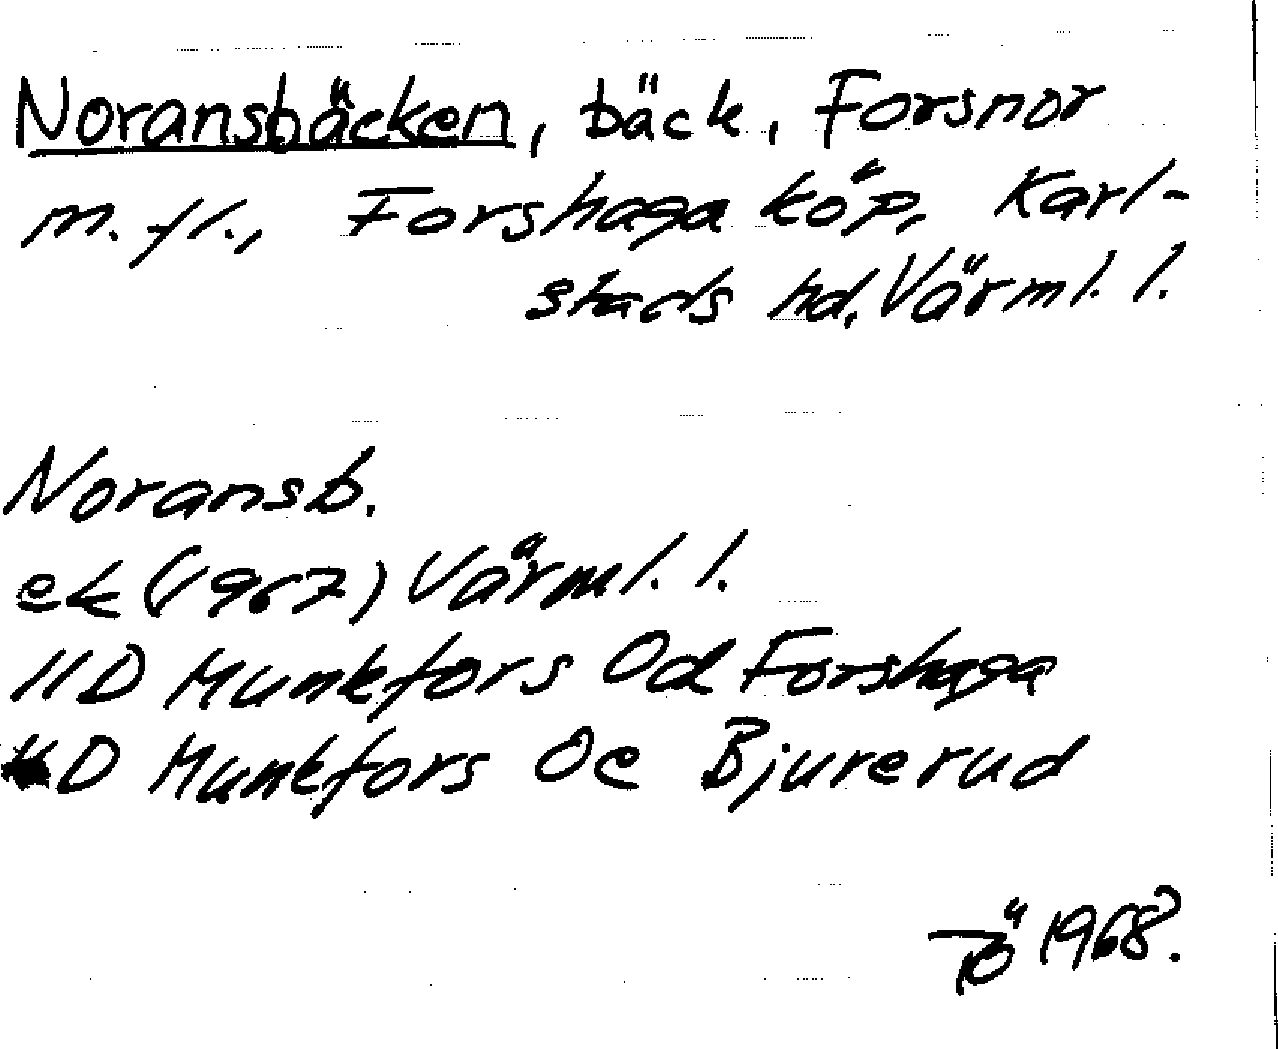 Noransbäcken, bäck, Forsnor
m. fl., Forshaga köp, Karl-
stads hd, Värml. l.
Noransb.
ek (1967) Värml. l.
11D Munkfors 0d Forshaga
11D Munkfors 0e Bjurerud
TÖ 1968.